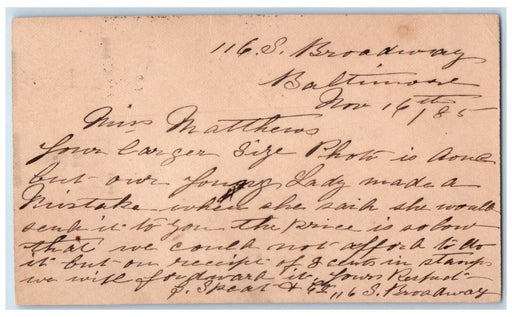 116 S. Broadway
Baltimore
Nov 16th /85
Miss Matthews
Your larger Size Photo is done
but our Young Lady made a
Mistake when she said she would
send it to you the price is so low
that we could not afford to do
it but on receipt of 8 cents in stamps
we will fordward it. Yours Respect.
Spear & Co 116 S. Broadway